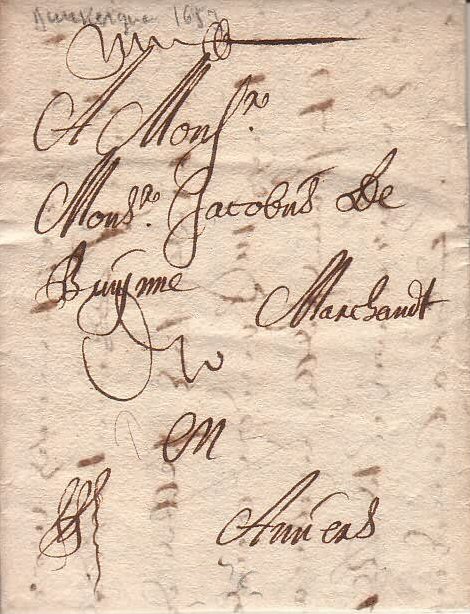 Dunkerque 1657
A Monsr.
Monsr. Jacobus De
Buÿnne
Marchandt
en
Anvers